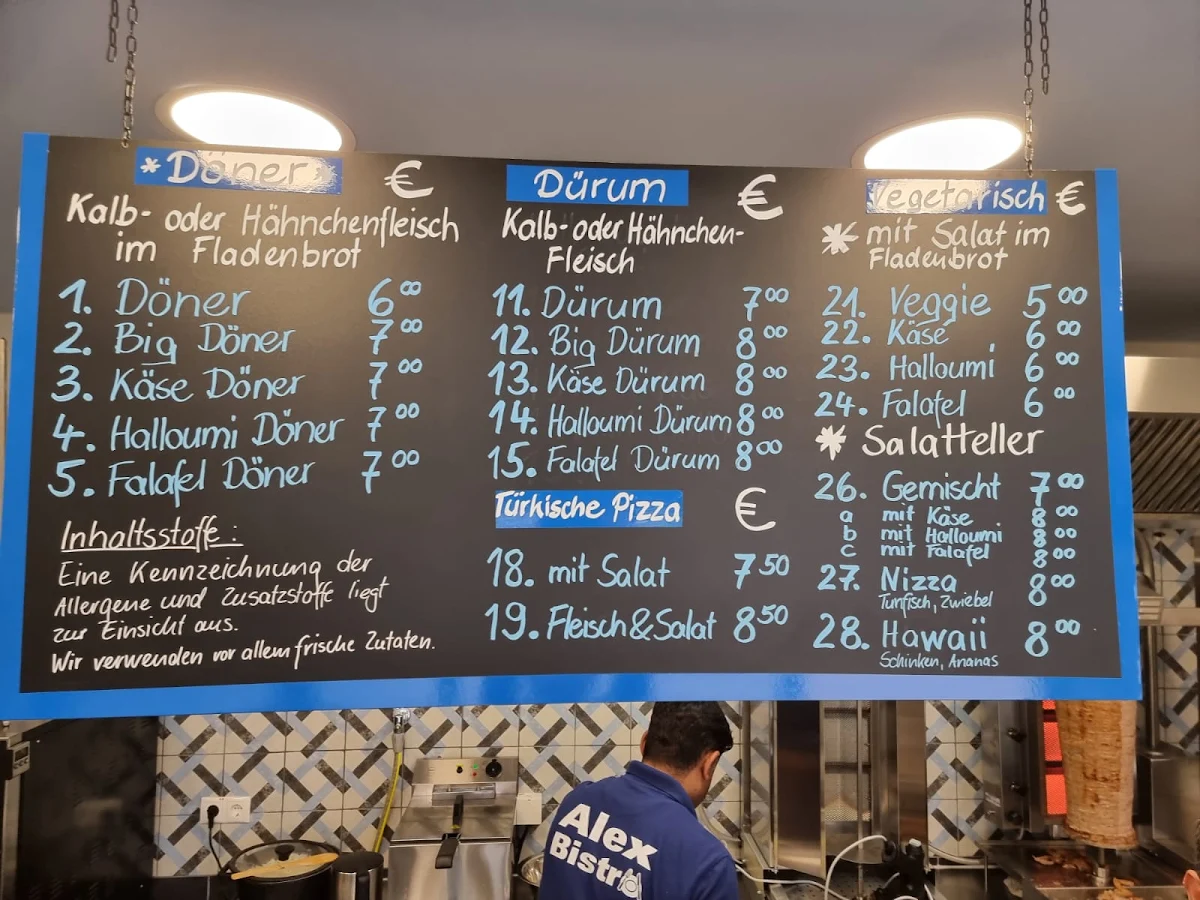 *Döner €
Kalb- oder Hähnchenfleisch
im Fladenbrot
1. Döner 6⁰⁰
2. Big Döner 7⁰⁰
3. Käse Döner 7⁰⁰
4. Halloumi Döner 7⁰⁰
5. Falafel Döner 7⁰⁰
Inhaltsstoffe:
Eine Kennzeichnung der
Allergene und Zusatzstoffe liegt
zur Einsicht aus.
Wir verwenden vor allem frische Zutaten.
Dürum €
Kalb- oder Hähnchen-
Fleisch
11. Dürum 7⁰⁰
12. Big Dürum 8⁰⁰
13. Käse Dürum 8⁰⁰
14. Halloumi Dürum 8⁰⁰
15. Falafel Dürum 8⁰⁰
Türkische Pizza €
18. mit Salat 7⁵⁰
19. Fleisch & Salat 8⁵⁰
Vegetarisch €
* mit Salat im
Fladenbrot
21. Veggie 5⁰⁰
22. Käse 6⁰⁰
23. Halloumi 6⁰⁰
24. Falafel 6⁰⁰
* Salatteller
26. Gemischt 7⁰⁰
a mit Käse 8⁰⁰
b mit Halloumi 8⁰⁰
c mit Falafel 8⁰⁰
27. Nizza 8⁰⁰
Tunfisch, Zwiebel
28. Hawaii 8⁰⁰
Schinken, Ananas
Alex
Bistro